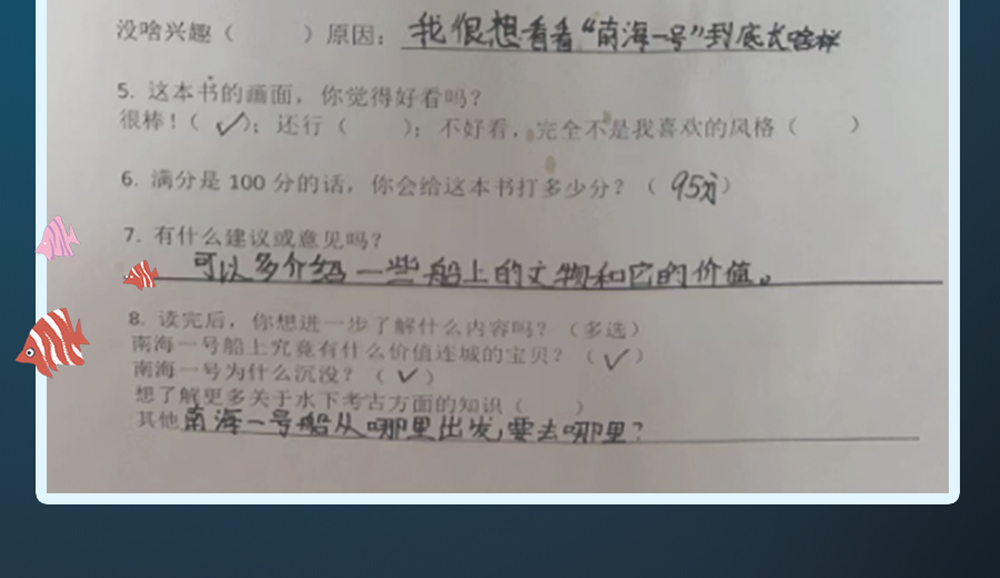 没啥兴趣（　　）原因：我很想看看“南海一号”到底长啥样
5. 这本书的画面，你觉得好看吗？
很棒！（✓）；还行（　　）；不好看，完全不是我喜欢的风格（　　）
6. 满分是 100 分的话，你会给这本书打多少分？（95分）
7. 有什么建议或意见吗？
可以多介绍一些船上的文物和它的价值。
8. 读完后，你想进一步了解什么内容吗？（多选）
南海一号船上究竟有什么价值连城的宝贝？（✓）
南海一号为什么沉没？（✓）
想了解更多关于水下考古方面的知识（　　）
其他南海一号船从哪里出发，要去哪里？